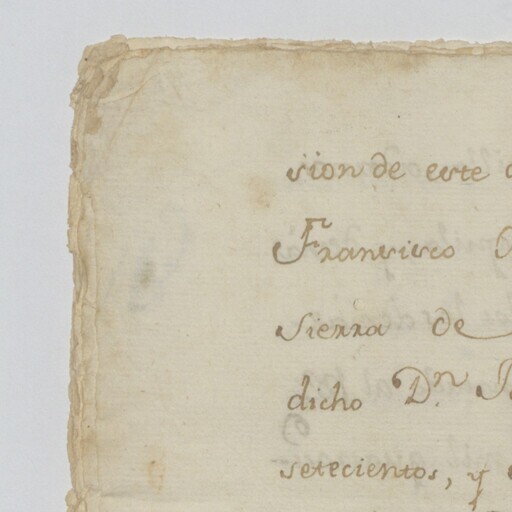 sion de este
Francisco
Sierra de
dicho Dn.
setecientos, y